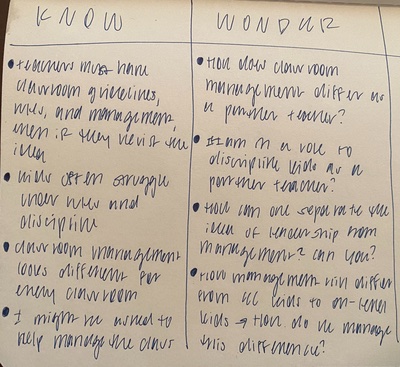 KNOW
• teachers must have
classroom guidelines,
rules, and management,
even if they resist the
idea
• kids often struggle
under rules and
discipline
• classroom management
looks different for
every classroom
• I might be asked to
help manage the class
WONDER
• How does classroom
management differ as
a partner teacher?
• Am I in a role to
discipline kids as a
partner teacher?
• How can one separate the
idea of censorship from
management? can you?
• How management will differ
from CC kids to on-level
kids → How do we manage
this difference?